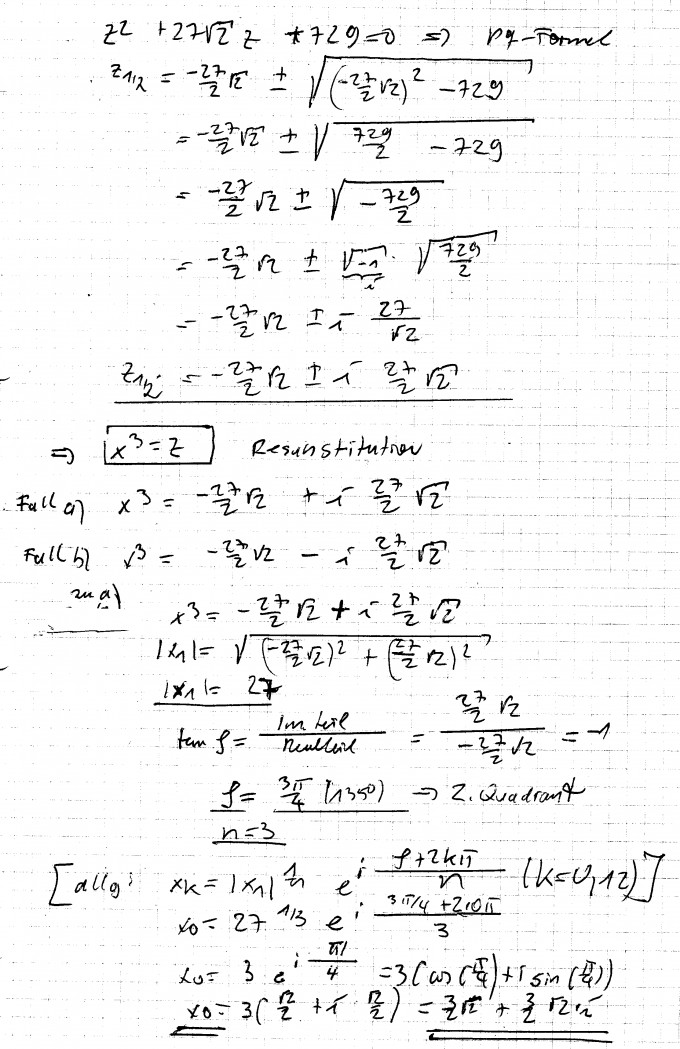 z² + 27√2 z + 729 = 0 ⇒ pq-Formel
z₁/₂ = -27/2 √2 ± √((-27/2 √2)² - 729)
= -27/2 √2 ± √(729/2 - 729)
= -27/2 √2 ± √(-729/2)
= -27/2 √2 ± √-1 · √(729/2)
i
= -27/2 √2 ± i 27/√2
z₁/₂ = -27/2 √2 ± i 27/2 √2
⇒ x³ = z Resubstitution
Fall a) x³ = -27/2 √2 + i 27/2 √2
Fall b) x³ = -27/2 √2 - i 27/2 √2
zu a)
x³ = -27/2 √2 + i 27/2 √2
|x₁| = √((-27/2 √2)² + (27/2 √2)²)
|x₁| = 27
tan φ = Im.teil/Realteil = (27/2 √2)/(-27/2 √2) = -1
φ = 3π/4 (135°) ⇒ 2. Quadrant
n = 3
[allg: xk = |x₁|^(1/n) e^(i (φ+2kπ)/n) (k=0,1,2)]
x₀ = 27^(1/3) e^(i (3π/4 + 2·0π)/3)
x₀ = 3 e^(i π/4) = 3(cos(π/4) + i sin(π/4))
x₀ = 3(√2/2 + i √2/2) = 3/2 √2 + 3/2 √2 · i